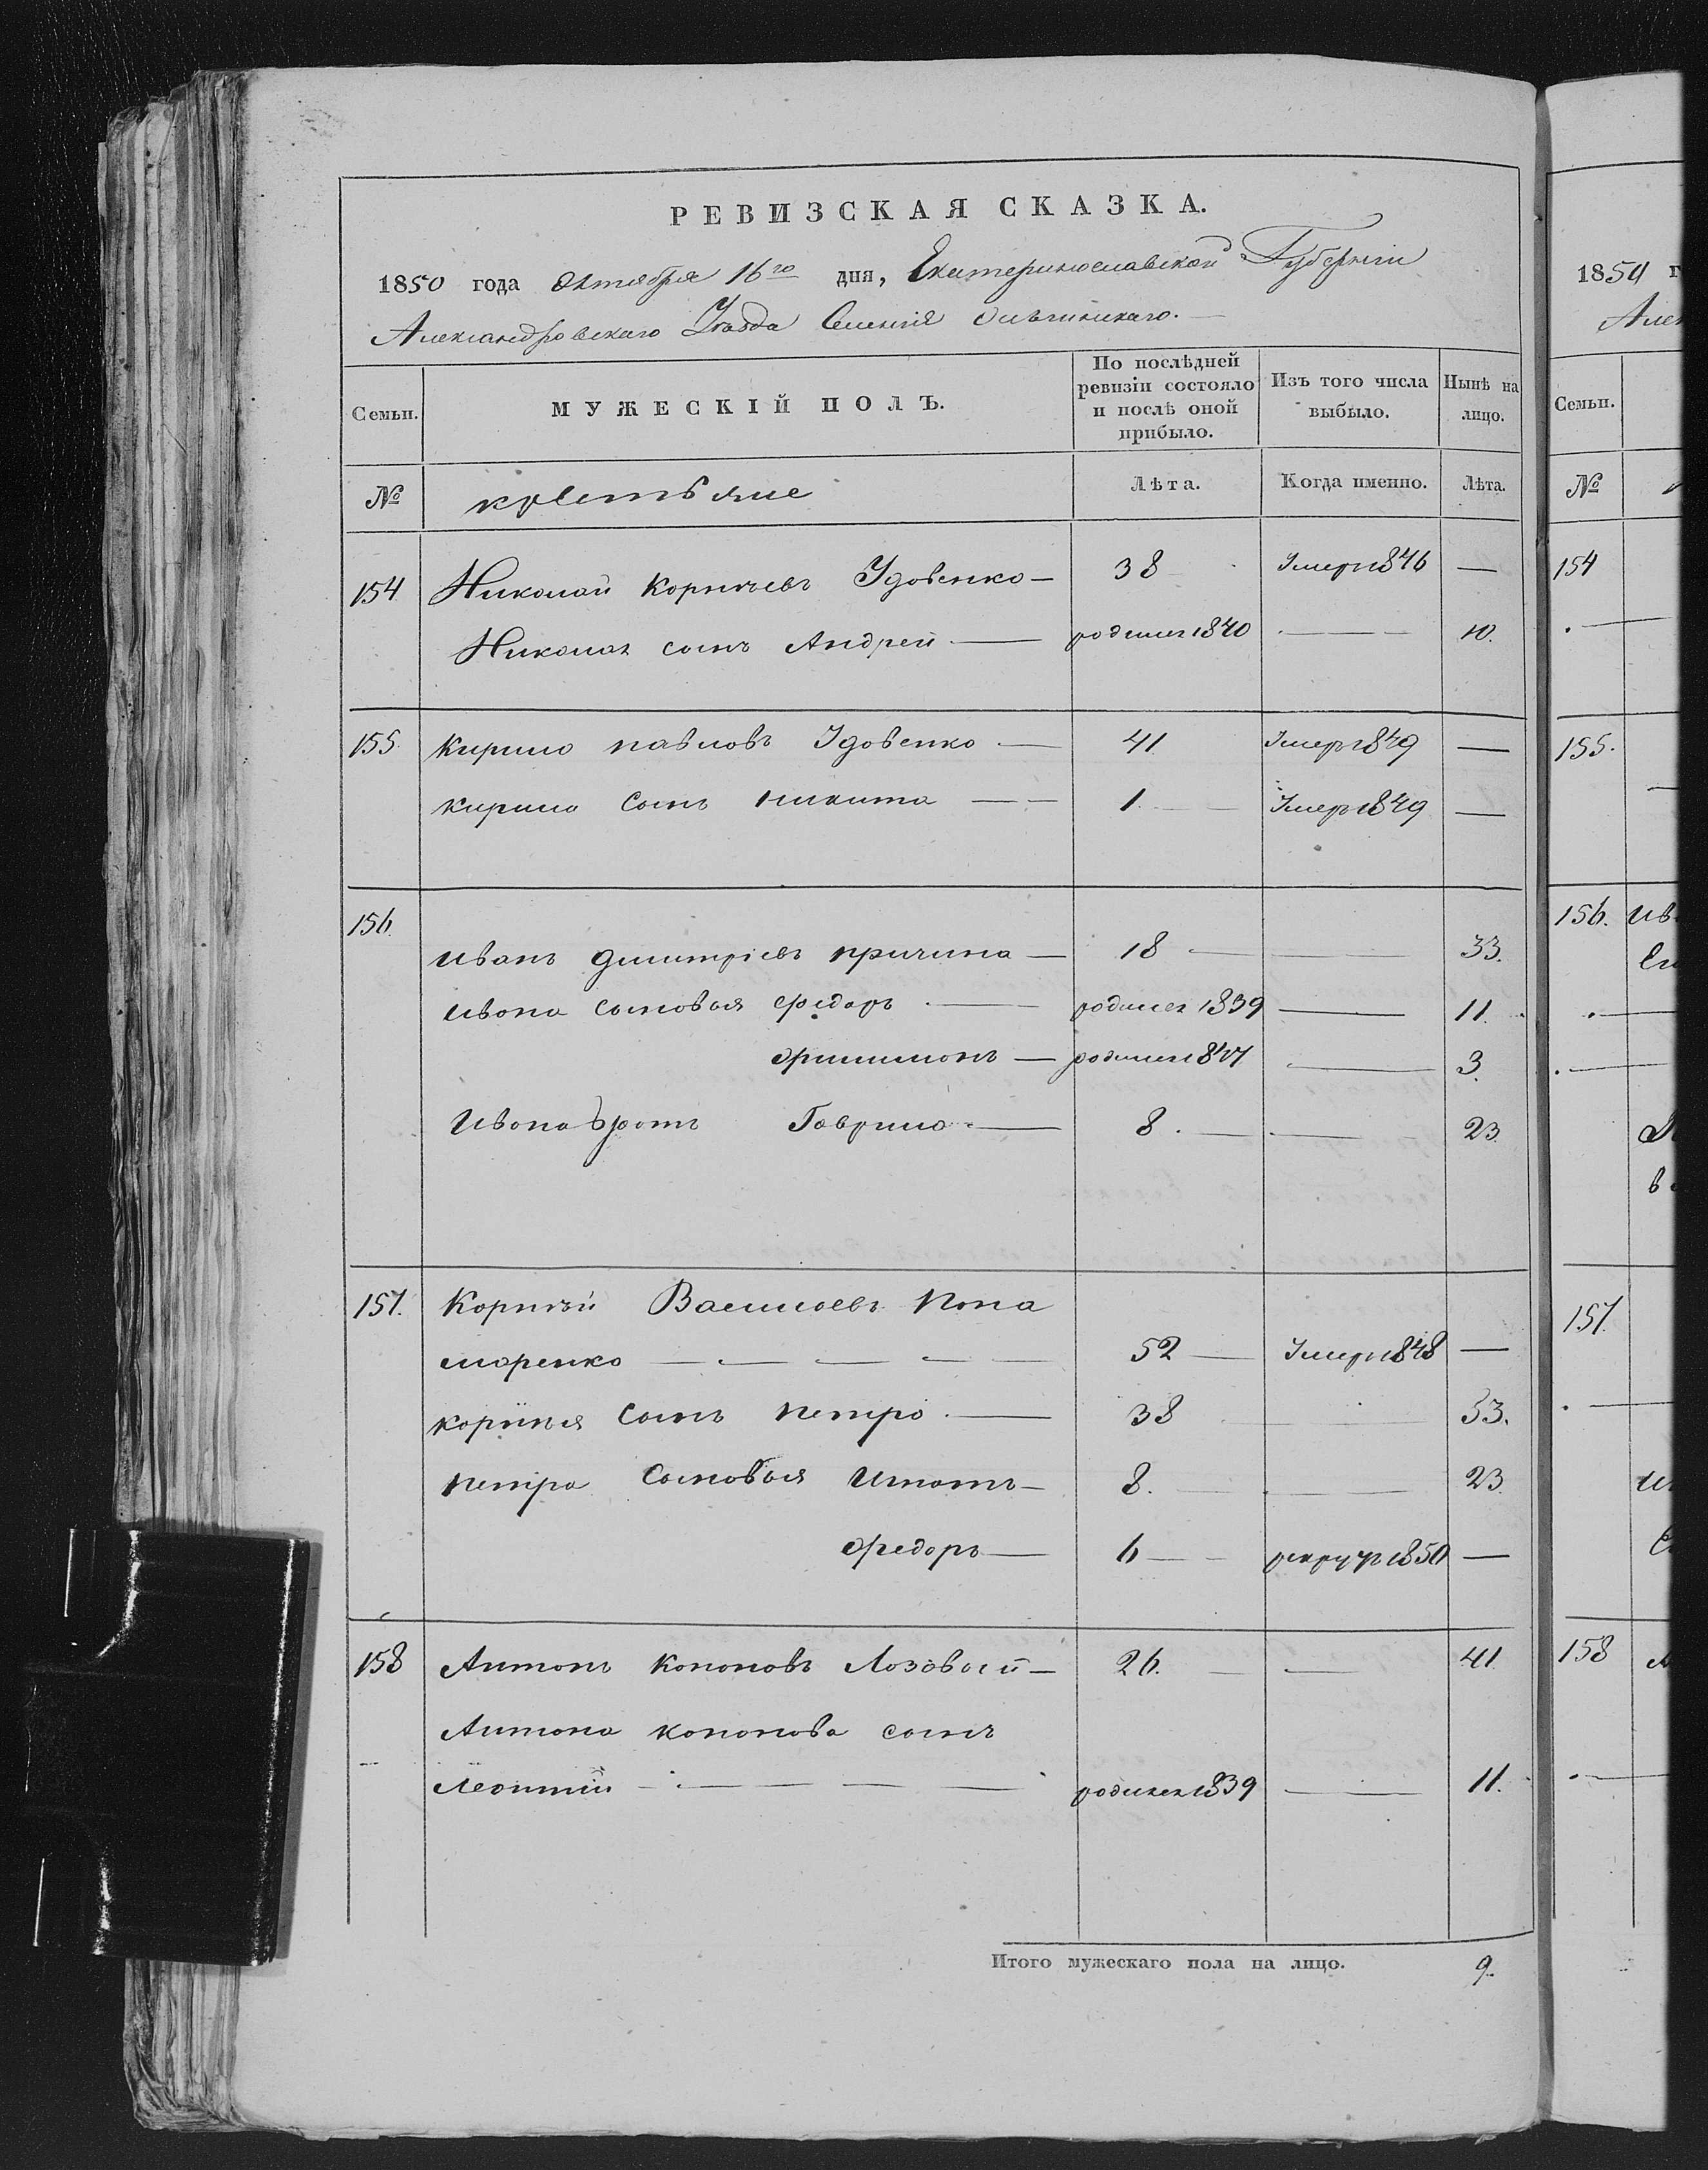 РЕВИЗСКАЯ СКАЗКА.
1850 года Октября 16го дня, Екатеринославской Губернии
Александровскаго Уезда Селения
Семьи. МУЖЕСКІЙ ПОЛЪ. По послѣдней ревизіи состояло и послѣ оной прибыло. Изъ того числа выбыло. Нынѣ на лицо.
№ крестьяне Лѣта. Когда именно. Лѣта.
154 Николай Корнѣевъ Удовенко — 38 Умеръ 1846 —
Николая сынъ Андрей — родился 1840 — 10.
155 Кирило Павловъ Удовенко — 41 Умеръ 1849 —
Кирила Сынъ Никита — 1. Умеръ 1849 —
156.
Иванъ Дмитріевъ Причина — 18 — 33.
Ивана Сыновья Федоръ — родился 1839 — 11.
Филимонъ — родился 1847 — 3.
Ивана братъ Гаврило — 8. — 23.
157. Корнѣй Василоевъ Пона
моренко — 52 — Умеръ 1848 —
Корнѣя Сынъ Петро — 38 53.
Петра Сыновья Игнатъ — 8. — 23.
Федоръ — 6 — рекрутъ 1850 —
158 Антонъ Кононовъ Лозовый — 26. — 41.
Антона Кононова сынъ
Леонтій — родился 1839 — 11.
Итого мужескаго пола на лицо. 9.
1850 г
Алек
Семьи.
№
154
155.
156. Ив
157.
158 А